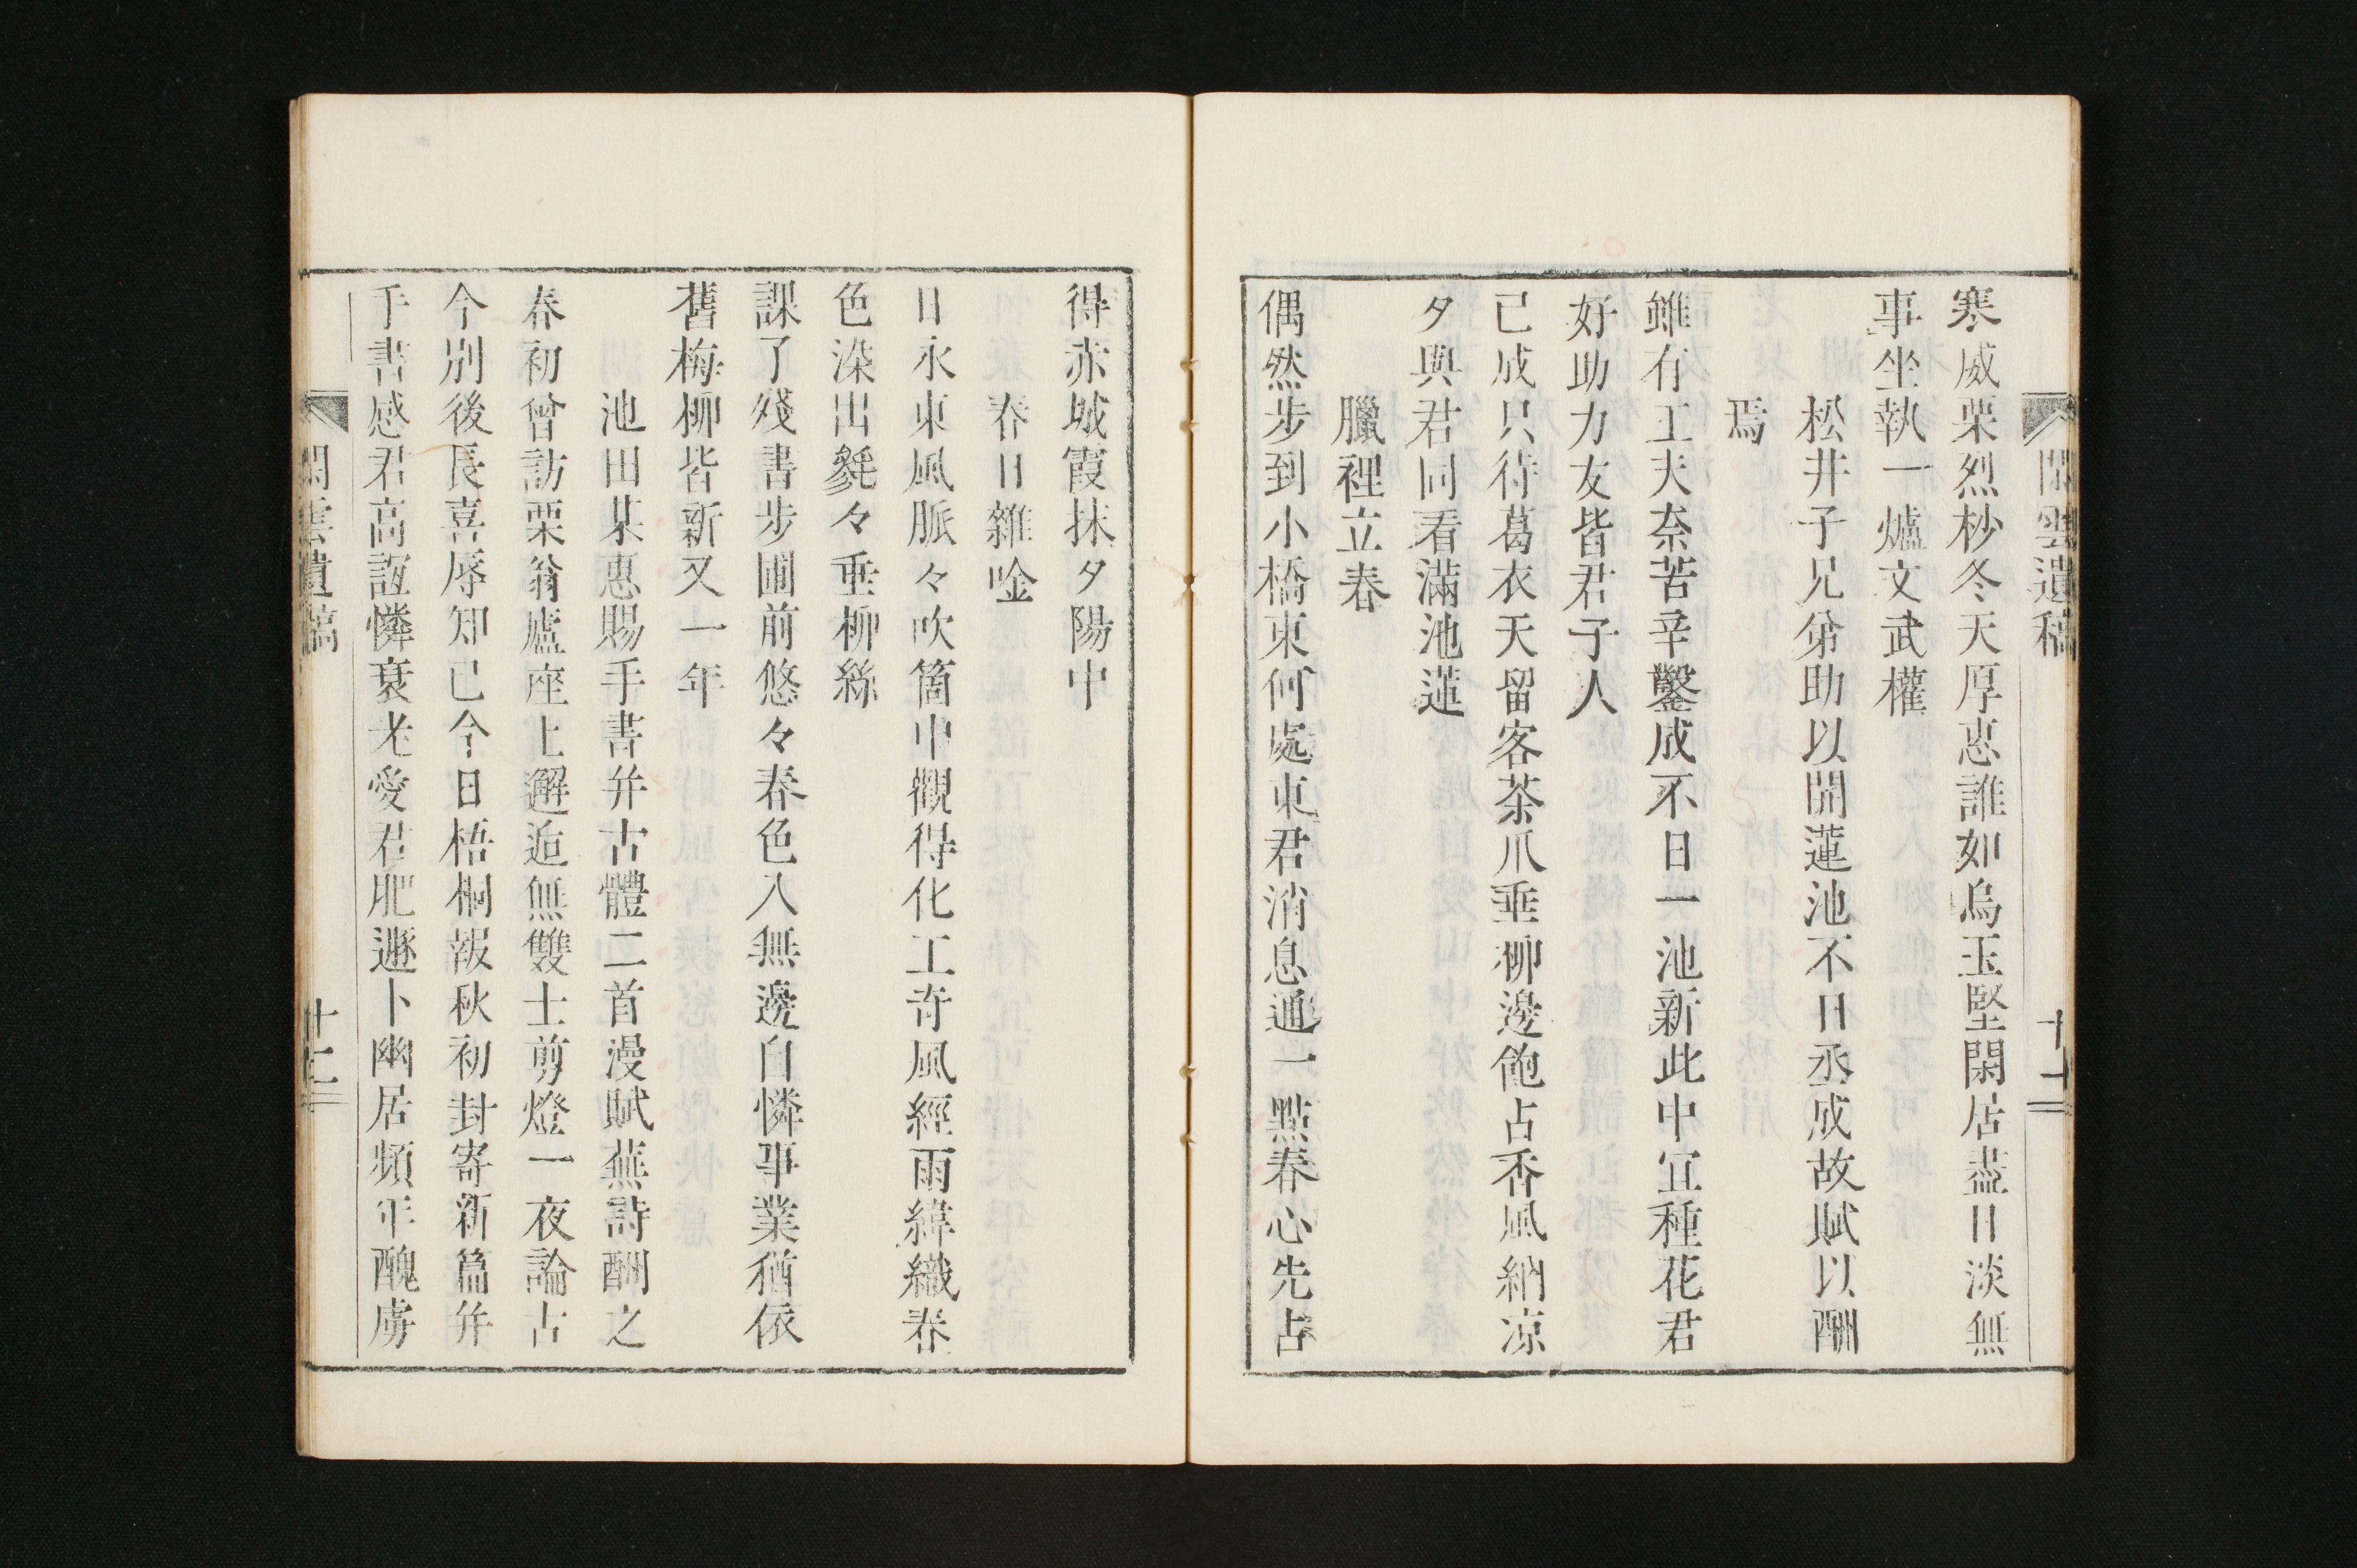 閑雲遺稿
十一
寒威栗烈杪冬天厚惠誰如烏玉堅閑居盡日淡無
事坐執一爐文武權
松井子兄弟助以開蓮池不日丞成故賦以酬
焉
雖有工夫奈苦辛鑿成不日一池新此中宜種花君
好助力友皆君子人
已成只待葛衣天留客茶爪垂柳邊飽占香風納凉
夕與君同看滿池蓮
臘裡立春
偶然步到小橋東何處東君消息通一點春心先占
得赤城霞抹夕陽中
春日雜唫
日永東風脈々吹箇中觀得化工奇風經雨緯織春
色染出毿々垂柳絲
課了殘書步圃前悠々春色入無邊自憐事業猶依
舊梅柳皆新又一年
池田某惠賜手書并古體二首漫賦蕪詩酬之
春初曾訪栗翁廬座上邂逅無雙士剪燈一夜論古
今別後長喜辱知已今日梧桐報秋初封寄新篇并
手書感君高誼憐衰老愛君肥遯卜幽居頻年醜虜
閑雲遺稿
十二